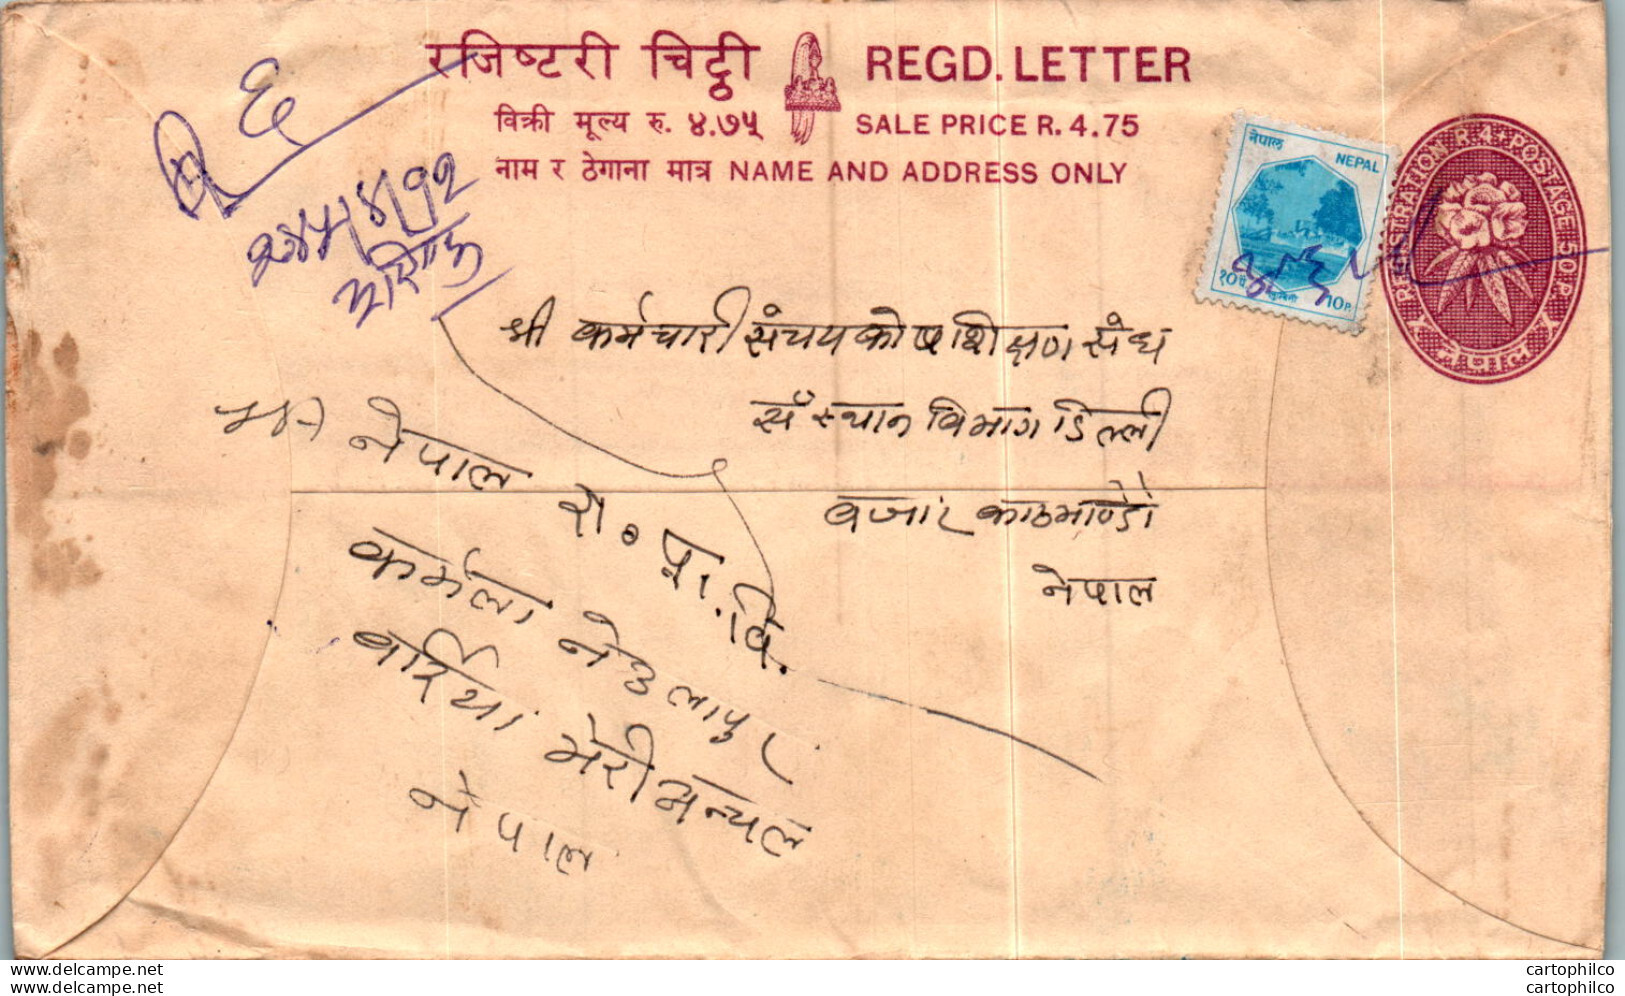 रजिष्टरी चिट्ठी REGD. LETTER
विक्री मूल्य रु. ४.७५ SALE PRICE R. 4.75
नाम र ठेगाना मात्र NAME AND ADDRESS ONLY
REGISTRATION R.4 - POSTAGE 50 P.
नेपाल
नेपाल NEPAL
१० पै लुम्बिनी 10P.
श्री कर्मचारी संचय कोष शिक्षण संघ
संस्थान विभाग डिल्ली
बजार काठमाण्डौ
नेपाल
नेपाल रा. प्रा. वि.
नेउलापुर
बर्दिया भेरी अन्चल
नेपाल
www.delcampe.net
www.delcampe.net
cartophilco
cartophilco